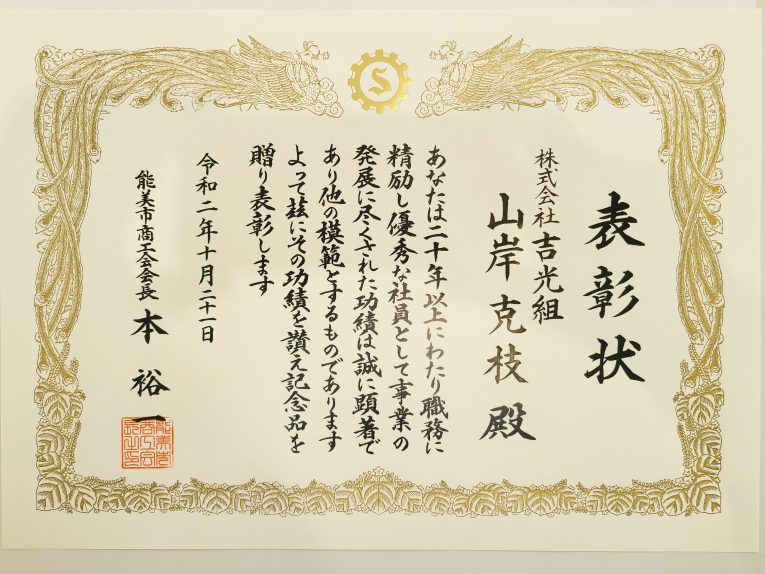 表彰状
株式会社吉光組
山岸克枝殿
あなたは二十年以上にわたり職務に
精励し優秀な社員として事業の
発展に尽くされた功績は誠に顕著で
あり他の模範とするものであります
よって茲にその功績を讃え記念品を
贈り表彰します
令和二年十月二十一日
能美市商工会会長 本裕一
S